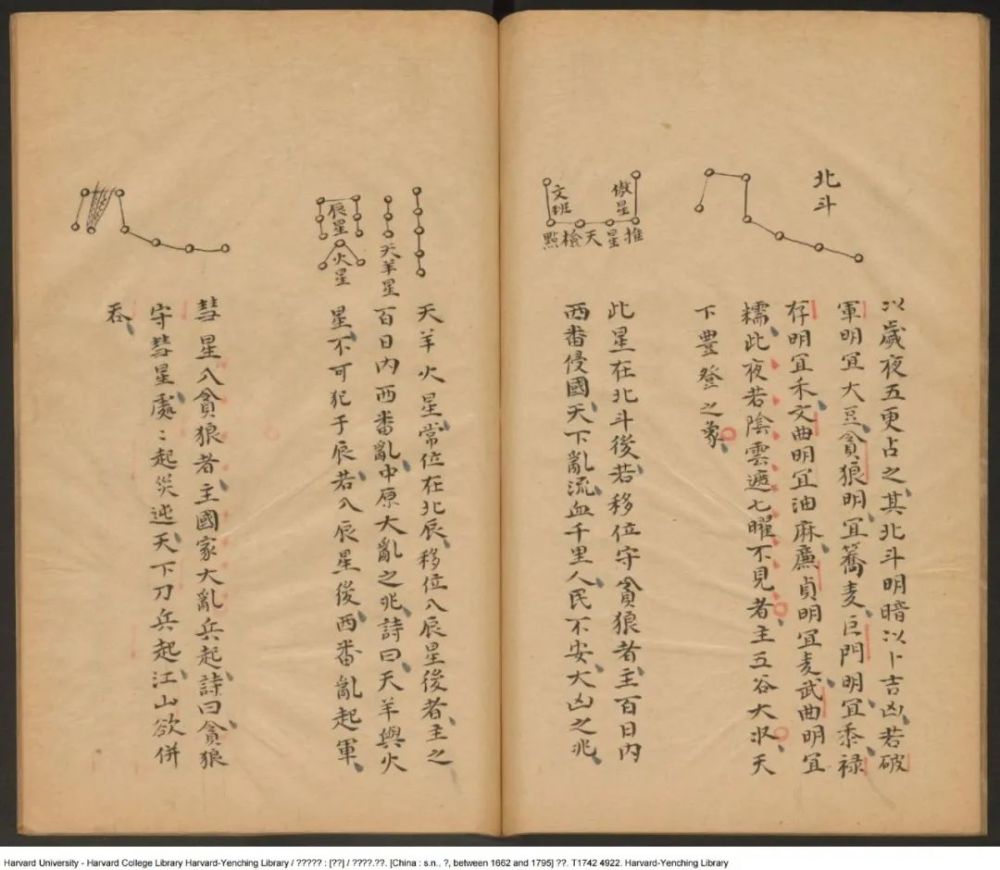 北斗
以歲夜五更占之其北斗明暗以卜吉凶若破
軍明宜大豆貪狼明宜蕎麦巨門明宜黍禄
存明宜禾文曲明宜油麻廉貞明宜麦武曲明宜
糯此夜若陰雲遮七曜不見者主五谷大収天
下豐登之象
傲星
推星天槍點
文班
此星在北斗後若移位守貪狼者主百日內
西番侵國天下亂流血千里人民不安大凶之兆
天羊火星常位在北辰移位入辰星後者主之
天羊星
百日內西番亂中原大亂之兆詩曰天羊與火
辰星
火星
星不可犯于辰若入辰星後西番亂起軍
彗星入貪狼者主國家大亂兵起詩曰貪狼
守彗星處〻起災迍天下刀兵起江山欲併
吞
Harvard University - Harvard College Library Harvard-Yenching Library / ????? : [??] / ????.??. [China : s.n.. ?, between 1662 and 1795] ??. T1742 4922. Harvard-Yenching Library